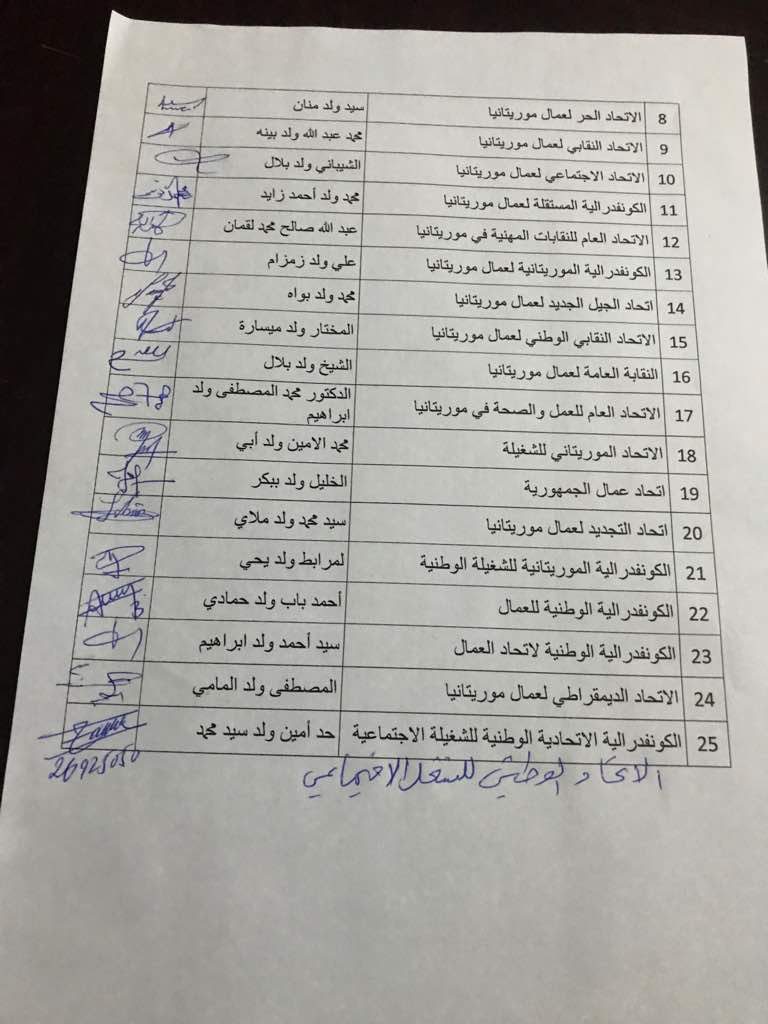 8 الاتحاد الحر لعمال موريتانيا سيد ولد منان
9 الاتحاد النقابي لعمال موريتانيا محمد عبد الله ولد بينه
10 الاتحاد الاجتماعي لعمال موريتانيا الشيباني ولد بلال
11 الكونفدرالية المستقلة لعمال موريتانيا محمد ولد أحمد زايد
12 الاتحاد العام للنقابات المهنية في موريتانيا عبد الله صالح محمد لقمان
13 الكونفدرالية الموريتانية لعمال موريتانيا علي ولد زمزام
14 اتحاد الجيل الجديد لعمال موريتانيا محمد ولد بواه
15 الاتحاد النقابي الوطني لعمال موريتانيا المختار ولد ميسارة
16 النقابة العامة لعمال موريتانيا الشيخ ولد بلال
17 الاتحاد العام للعمل والصحة في موريتانيا الدكتور محمد المصطفى ولد
ابراهيم
18 الاتحاد الموريتاني للشغيلة محمد الامين ولد أبي
19 اتحاد عمال الجمهورية الخليل ولد ببكر
20 اتحاد التجديد لعمال موريتانيا سيد محمد ولد ملاي
21 الكونفدرالية الموريتانية للشغيلة الوطنية لمرابط ولد يحي
22 الكونفدرالية الوطنية للعمال أحمد باب ولد حمادي
23 الكونفدرالية الوطنية لاتحاد العمال سيد أحمد ولد ابراهيم
24 الاتحاد الديمقراطي لعمال موريتانيا المصطفى ولد المامي
25 الكونفدرالية الاتحادية الوطنية للشغيلة الاجتماعية حد أمين ولد سيد محمد
الاتحاد الوطني للشغل الاجتماعي 26925050